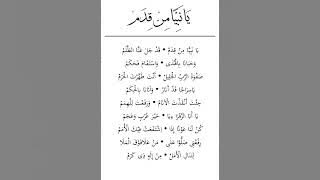 يَا نَبِيًّا مِنْ قِدَمْ
يَا نَبِيًّا مِنْ قِدَمْ • قَدْ جَلَى عَنَّا الظُّلَمْ
وَحَبَانَا بِالْهُدَى • وَاسْتَقَامَ فَحَكَمْ
صَفْوَةُ الرَّبِّ الْجَلِيْل • أَنْتَ طَهَّرْتَ الْحَرَمْ
يَا سِرَاجًا قَدْ أَنَارْ • وَأَتَانَا بِالْحِكَمْ
جِئْتَ أَنْقَذْتَ الْأَنَامْ • وَرَفَعْتَ لِلْهِمَمْ
يَا أَبَا الزَّهْرَا وَيَا • خَيْرَ عُرْبٍ وَعَجَمْ
كُنْ لَنَا عَوْنًا إِذَا • اسْتَشْفَعَتْ فِيْكَ الْأُمَمْ
رِفْقَتِي صَلُّوْا عَلَى • مَنْ عَلَا فَوْقَ الْمَلَا
لِنَنَالَ الْأَمَلْ • مِنْ إِلَهٍ ذِي كَرَمْ